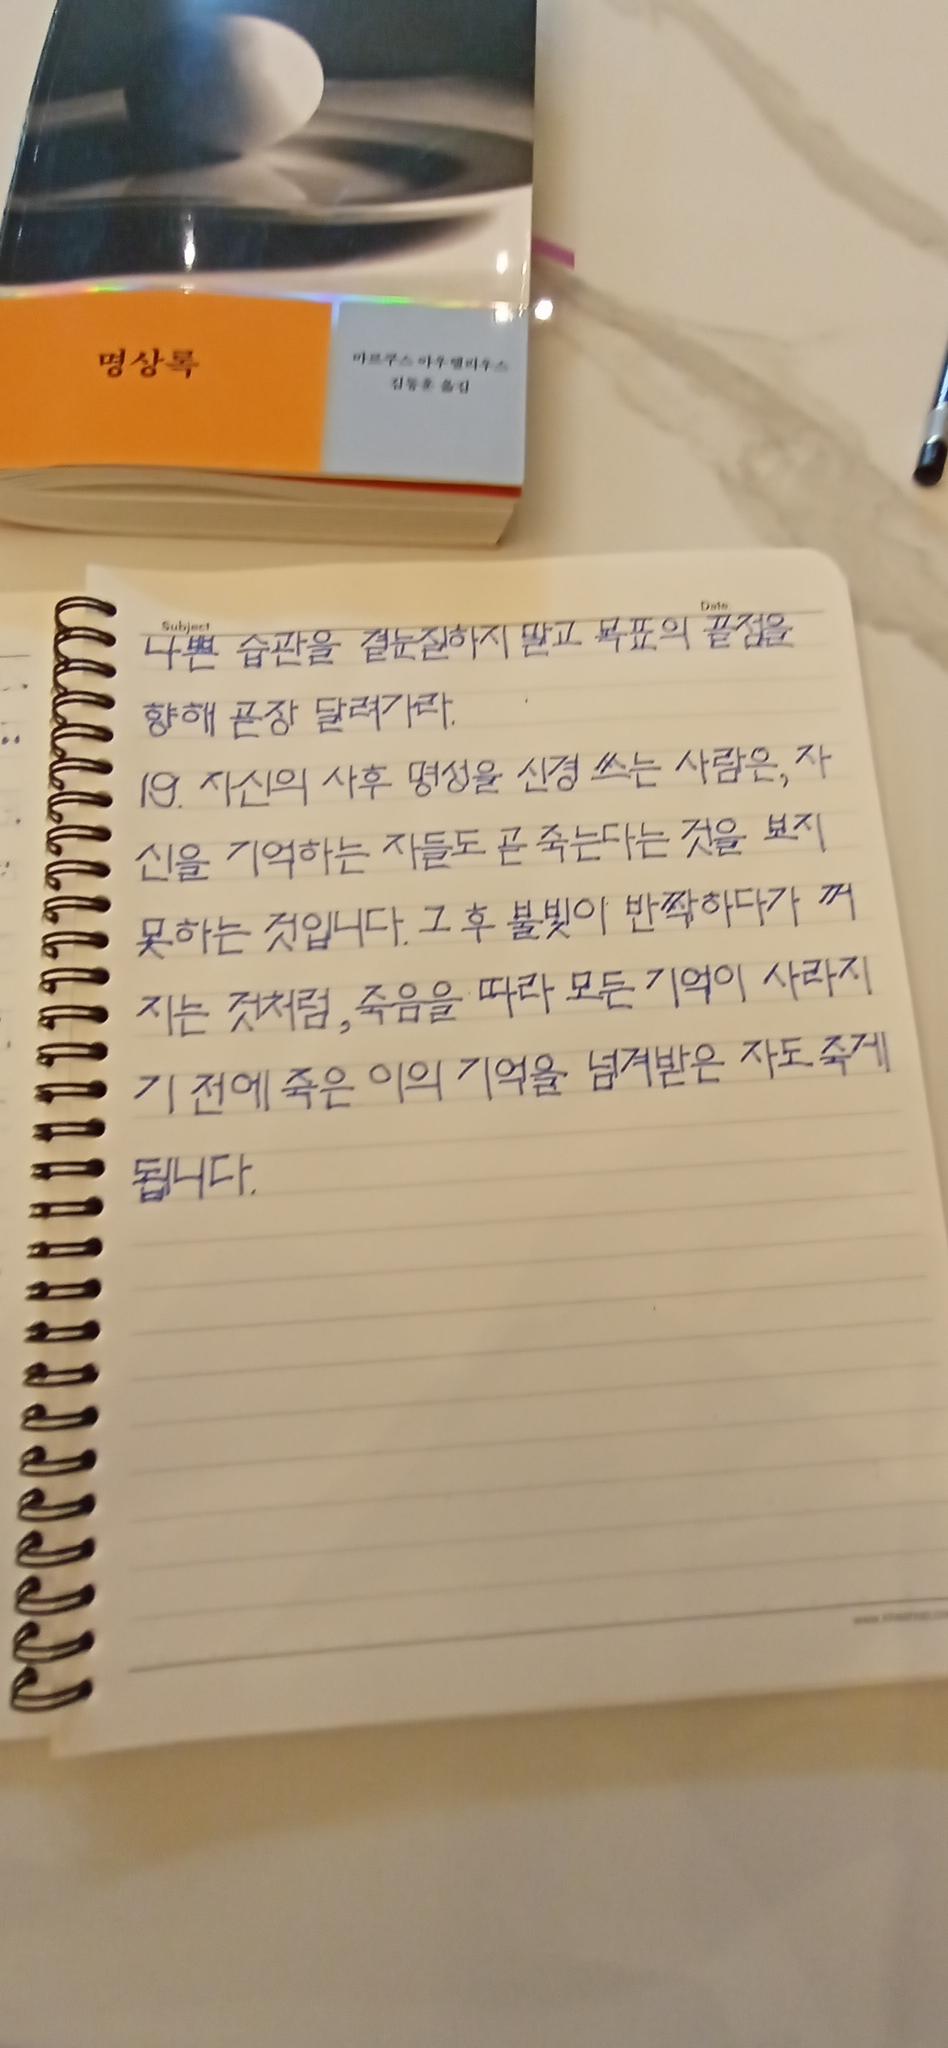 명상록
마르쿠스 아우렐리우스
김동훈 옮김
Subject
Date
나쁜 습관을 곁눈질하지 말고 목표의 끝점을
향해 곧장 달려가라.
19. 자신의 사후 명성을 신경 쓰는 사람은, 자
신을 기억하는 자들도 곧 죽는다는 것을 보지
못하는 것입니다. 그 후 불빛이 반짝하다가 꺼
지는 것처럼, 죽음을 따라 모든 기억이 사라지
기 전에 죽은 이의 기억을 넘겨받은 자도 죽게
됩니다.